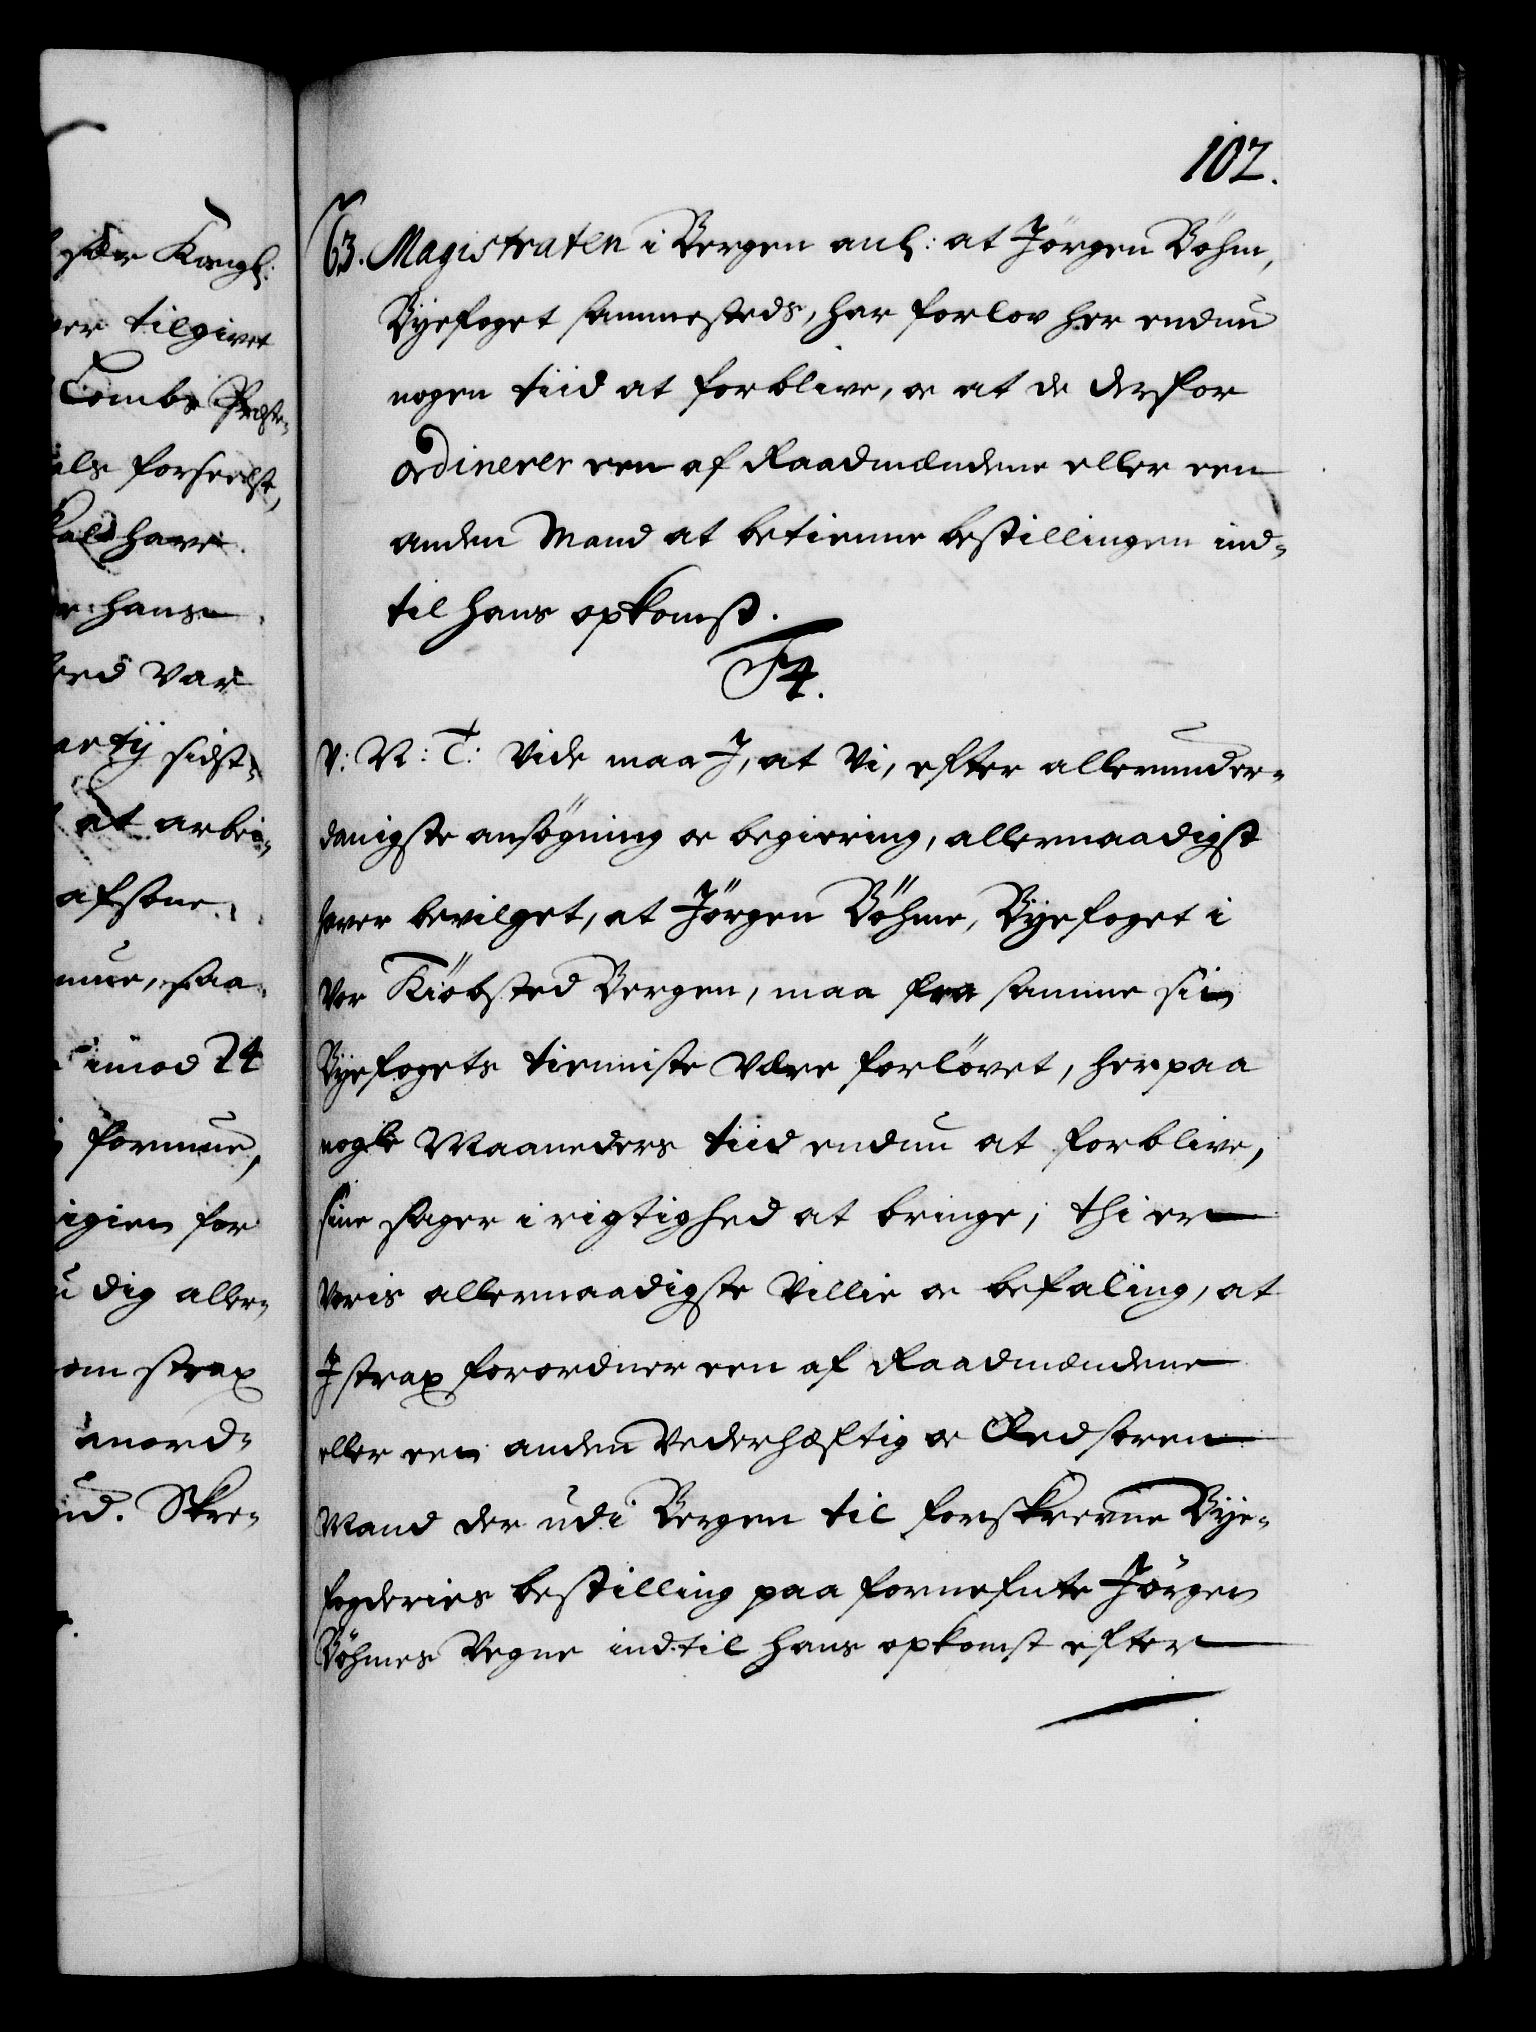 102.
63. Magistraten i Bergen anl: at Jörgen Böhm,
Byefoget sammesteds, har forlov her endnu
nogen tiid at forblive, oc at de derfor
ordinerer een af Raadmændene eller een
anden Mand at betienne bestillingen ind-
til hans opkomst.
F4.
V: N: T: Vide maa J, at Vi, efter allerunder-
danigste ansögning oc begiering, allernaadigst
haver bevilget, at Jörgen Böhme, Byefoget i
vor Kiöbsted Bergen, maa fra samme sin
Byefogets tienniste være forlövet, her paa
nogle Maaneders tiid endnu at forblive,
sine sager i rigtighed at bringe; thi er
Voris allernaadigste Villie oc befaling, at
J strax forordner een af Raadmændene
eller een anden Vederhæftig oc Ædsoren
Mand der udi Bergen til forskrevne Bye-
fogderies bestilling paa fornefnte Jörgen
Böhmes Vegne indtil hans opkomst efter
Kangl:
tilgivet
forseelse,
have
hans
Var
sidst-
at arbei-
imod 24
formue,
for
dig aller-
om strax
anord-